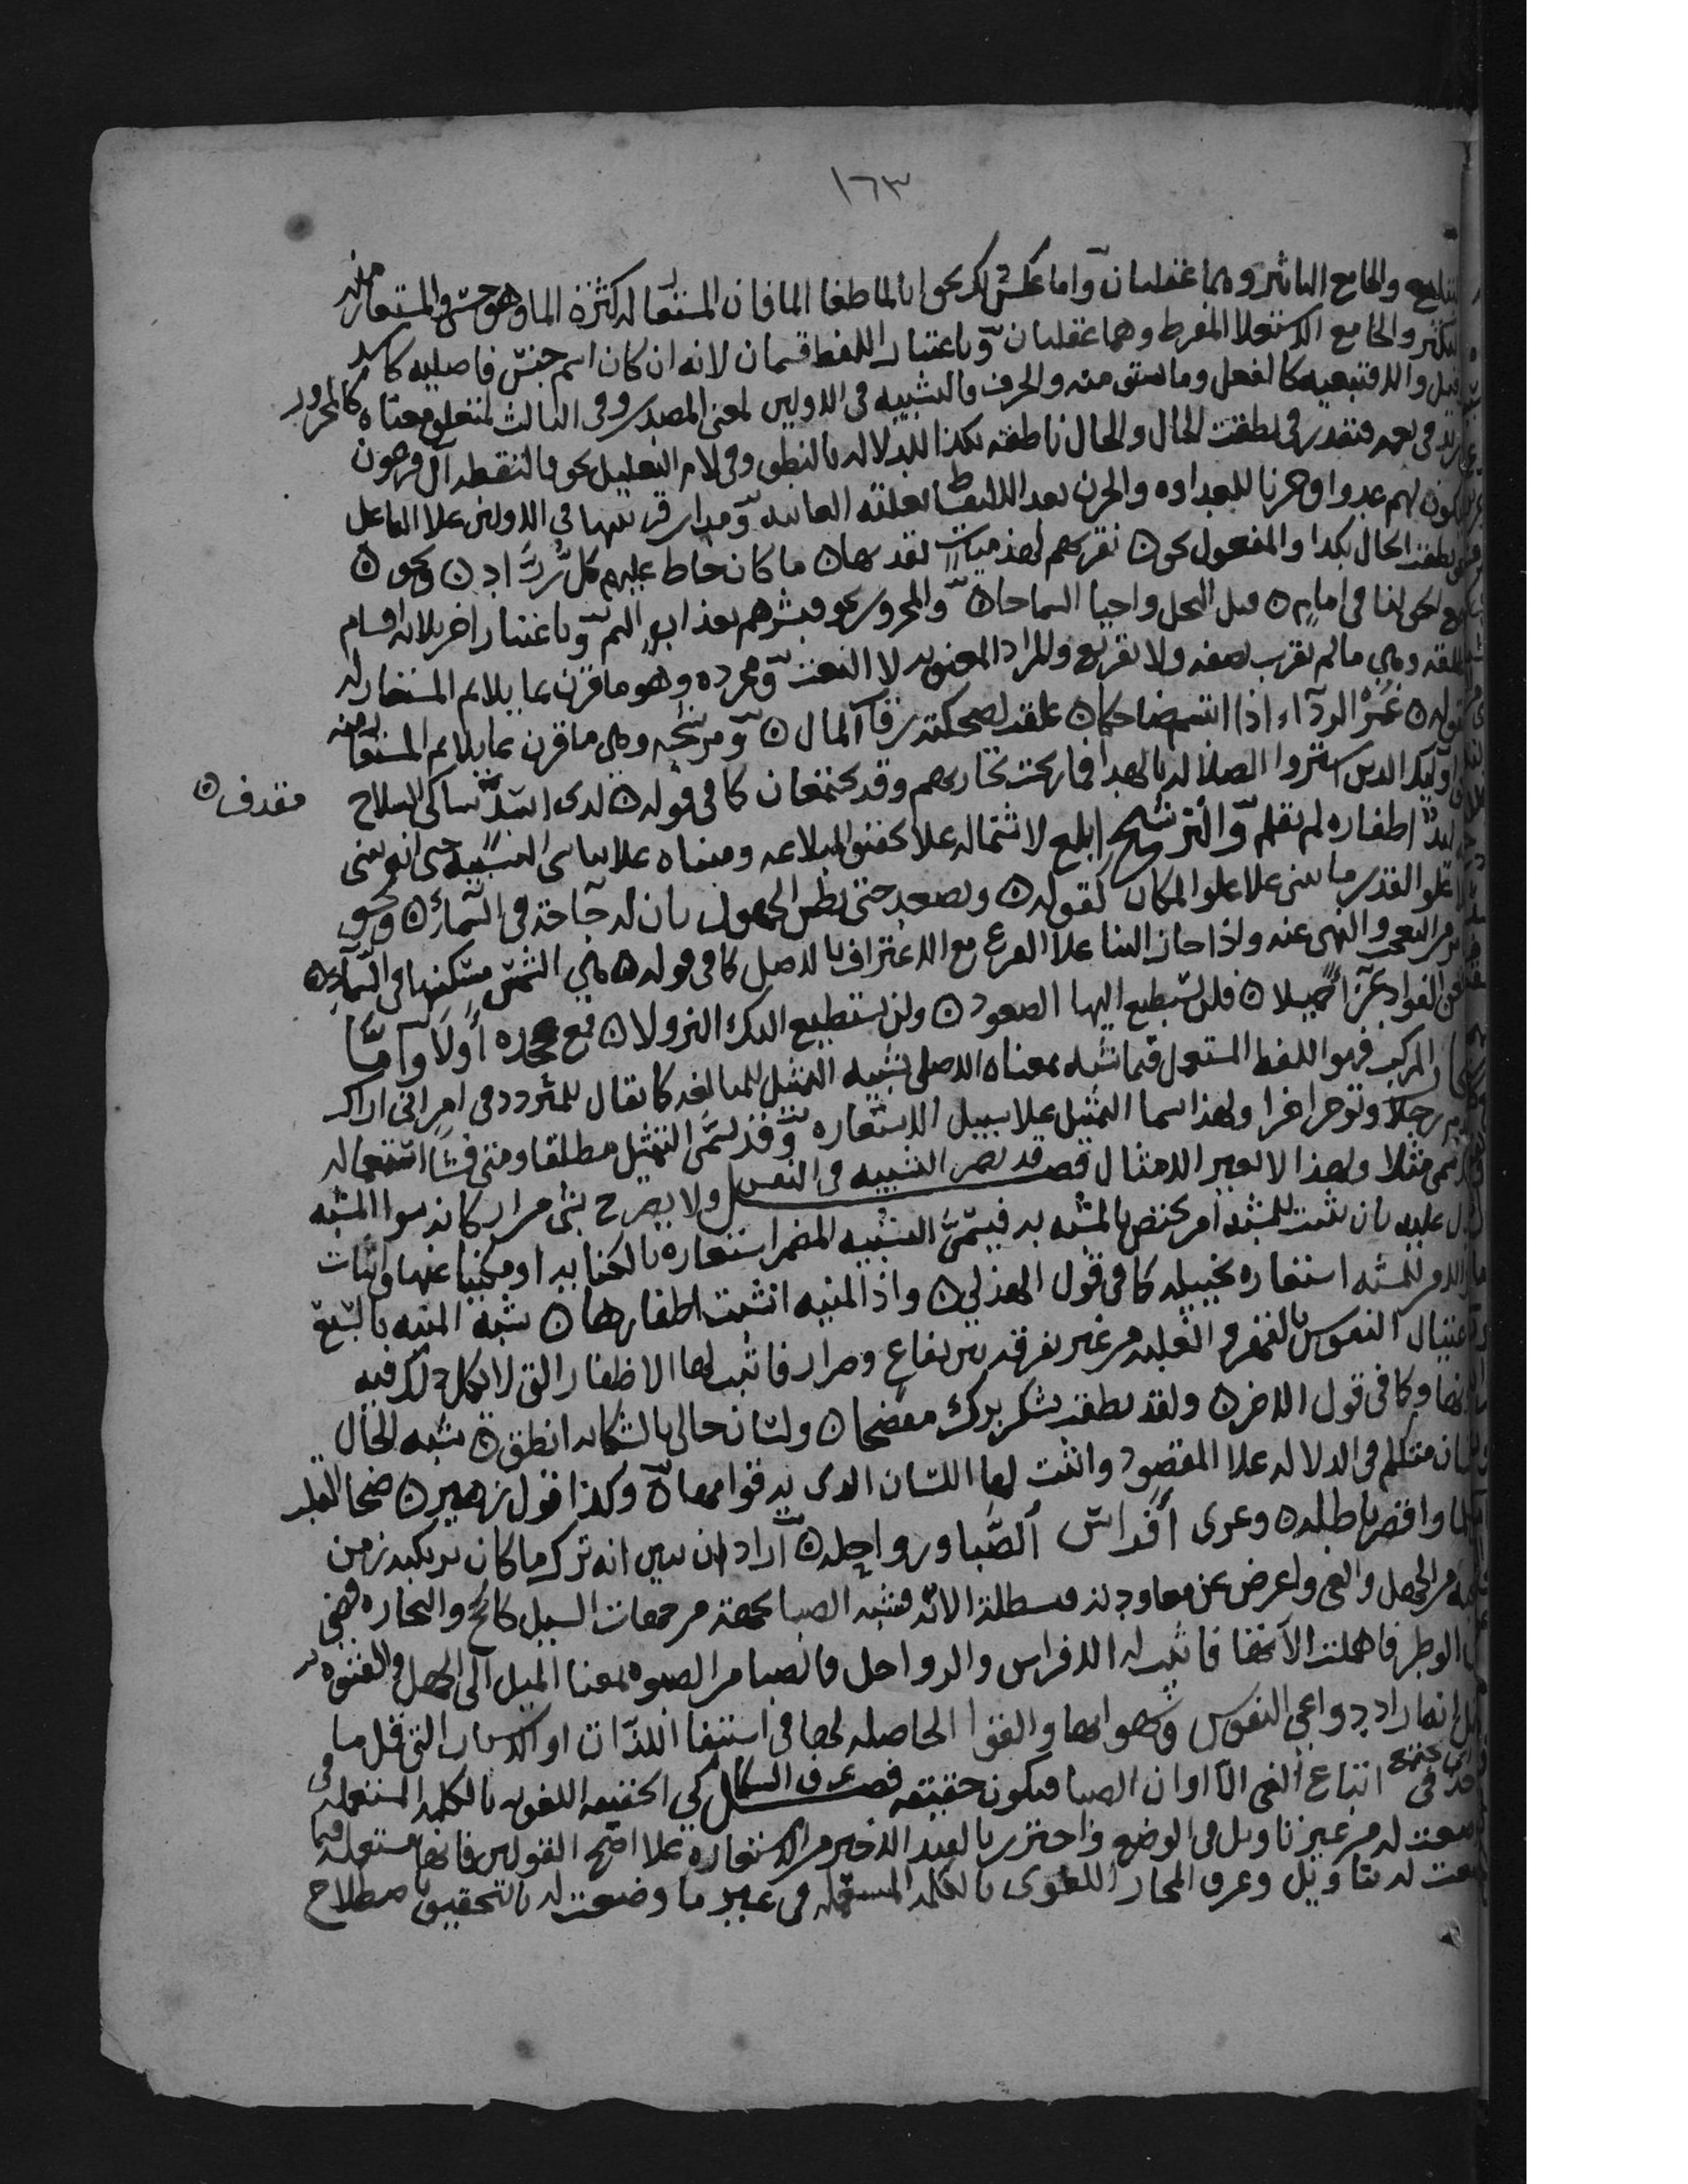 ١٦٣
التبليغ والجامع التاثير وهما عقليان واما عكس ذلك نحو انا لما طغا الما فان المستعار له كثرة الما وهو حسي والمستعار منه
التكبر والجامع الاستعلا المفرط وهما عقليان وباعتبار اللفظ قسمان لانه ان كان اسم جنس فاصليه كاسد
وقتل والا فتبعيه كالفعل وما يشتق منه والحرف فالتشبيه في الاولين لمعنى المصدر وفي الثالث لمتعلق معناه كالمجرور
في زيد في نعمه فتقدر في نطقت الحال والحال ناطقه بكذا للدلاله بالنطق وفي لام التعليل نحو فالتقطه آل فرعون
ليكون لهم عدوا وحزنا للعداوه والحزن بعد الالتقاط بعلته الغائيه ومدار قرينتها في الاولين علا الفاعل
نحو نطقت الحال بكذا والمفعول نحو ن نقريهم لهذميات نقد بها ن ما كان خاط عليهم كل زرّاد ن ونحو ن
جمع الحق لنا في امام ن قتل البخل واحيا السماحا ن والمجرور نحو فبشرهم بعذاب اليم وباعتبار اخر ثلاثه اقسام
مطلقه وهي ما لم تقرن بصفه ولا تفريع والمراد المعنويه لا النعت ومجرده وهو ما قرن بما يلائم المستعار له
كقوله ن غمر الردآء اذا تبسم ضاحكا ن علقت لضحكته رقاب المال ن ومرشحه وهي ما قرن بما يلائم المستعار منه
نحو اوليك الذين اشتروا الضلاله بالهدا فما ربحت تجارتهم وقد يجتمعان كما في قوله ن لدى اسد شاكي السلاح
مقذف ن
له لبد اظفاره لم تقلم والترشيح ابلغ لاشتماله علا تحقيق المبالغه ومبناه علا تناسي التشبيه حتى انه يبنى
علا علو القدر ما يبنى علا علو المكان كقوله ن ويصعد حتى يظن الجهول بان له حاجة في السمآء ن ونحو
ما مر من التعجب والنهي عنه واذا جاز البنا علا الفرع مع الاعتراف بالاصل كما في قوله ن هي الشمس مسكنها في السمآء ن
فعز الفواد عزآ جميلا ن فلن تستطيع اليها الصعود ن ولن تستطيع اليك النزولا ن فمع جحده اولا واما
المجاز المركب فهو اللفظ المستعمل فيما شبه بمعناه الاصلي تشبيه التمثيل للمبالغه كما يقال للمتردد في امر اني اراك
تقدم رجلا وتوخر اخرا ولهذا سما التمثيل علا سبيل الاستعاره وقد يسمى التمثيل مطلقا ومتى فشا استعماله
كذلك سمي مثلا ولهذا لا تغير الامثال فصل قد يضمر التشبيه في النفس ولا يصرح بشي من اركانه سوا المشبه
ويدل عليه بان يثبت للمشبه امر يختص بالمشبه به فيسمى التشبيه المضمر استعاره بالكنايه او مكنيا عنها واثبات
ذلك الامر للمشبه استعاره تخييليه كما في قول الهذلي ن واذا المنيه انشبت اظفارها ن شبه المنيه بالسبع
في اغتيال النفوس بالقهر والغلبه من غير تفرقه بين نفاع وضرار فاثبت لها الاظفار التي لا يكمل ذلك فيه
بدونها وكما في قول الاخر ن ولقد نطقت بشكر برك مفصحا ن ولسان حالي بالشكايه انطق ن شبه الحال
بانسان متكلم في الدلاله علا المقصود واثبت لها اللسان الذي به قوامها ن وكذا قول زهير ن صحا القلب
عن سلما واقصر باطله ن وعري أفراس الصّبا ورواحله ن اراد ان يبين انه ترك ما كان يرتكبه زمن
المحبه من الجهل والغي واعرض عن معاودته فبطلت الاته فشبه الصبا بجهة من جهات السير كالحج والتجاره قضى
منها الوطر فاهملت الاتها فاثبت له الافراس والرواحل فالصبا من الصبوه بمعنا الميل الى الجهل والفتوه
ويحتمل انه اراد دواعي النفوس وشهواتها والقوا الحاصله لها في استيفا اللذات او الاسباب التي قل ما
تتاخذ في اتباع الغي الا اوان الصبا فيكون حقيقه فصل عرف السكاكي الحقيقه اللغويه بالكلمه المستعمله
وضعت له من غير تاويل في الوضع واحترز بالقيد الاخير من الاستعاره علا اصح القولين فانها مستعمله فيما
وضعت له بتاويل وعرف المجاز اللغوى بالكلمه المستعمله في غير ما وضعت له بالتحقيق باصطلاح